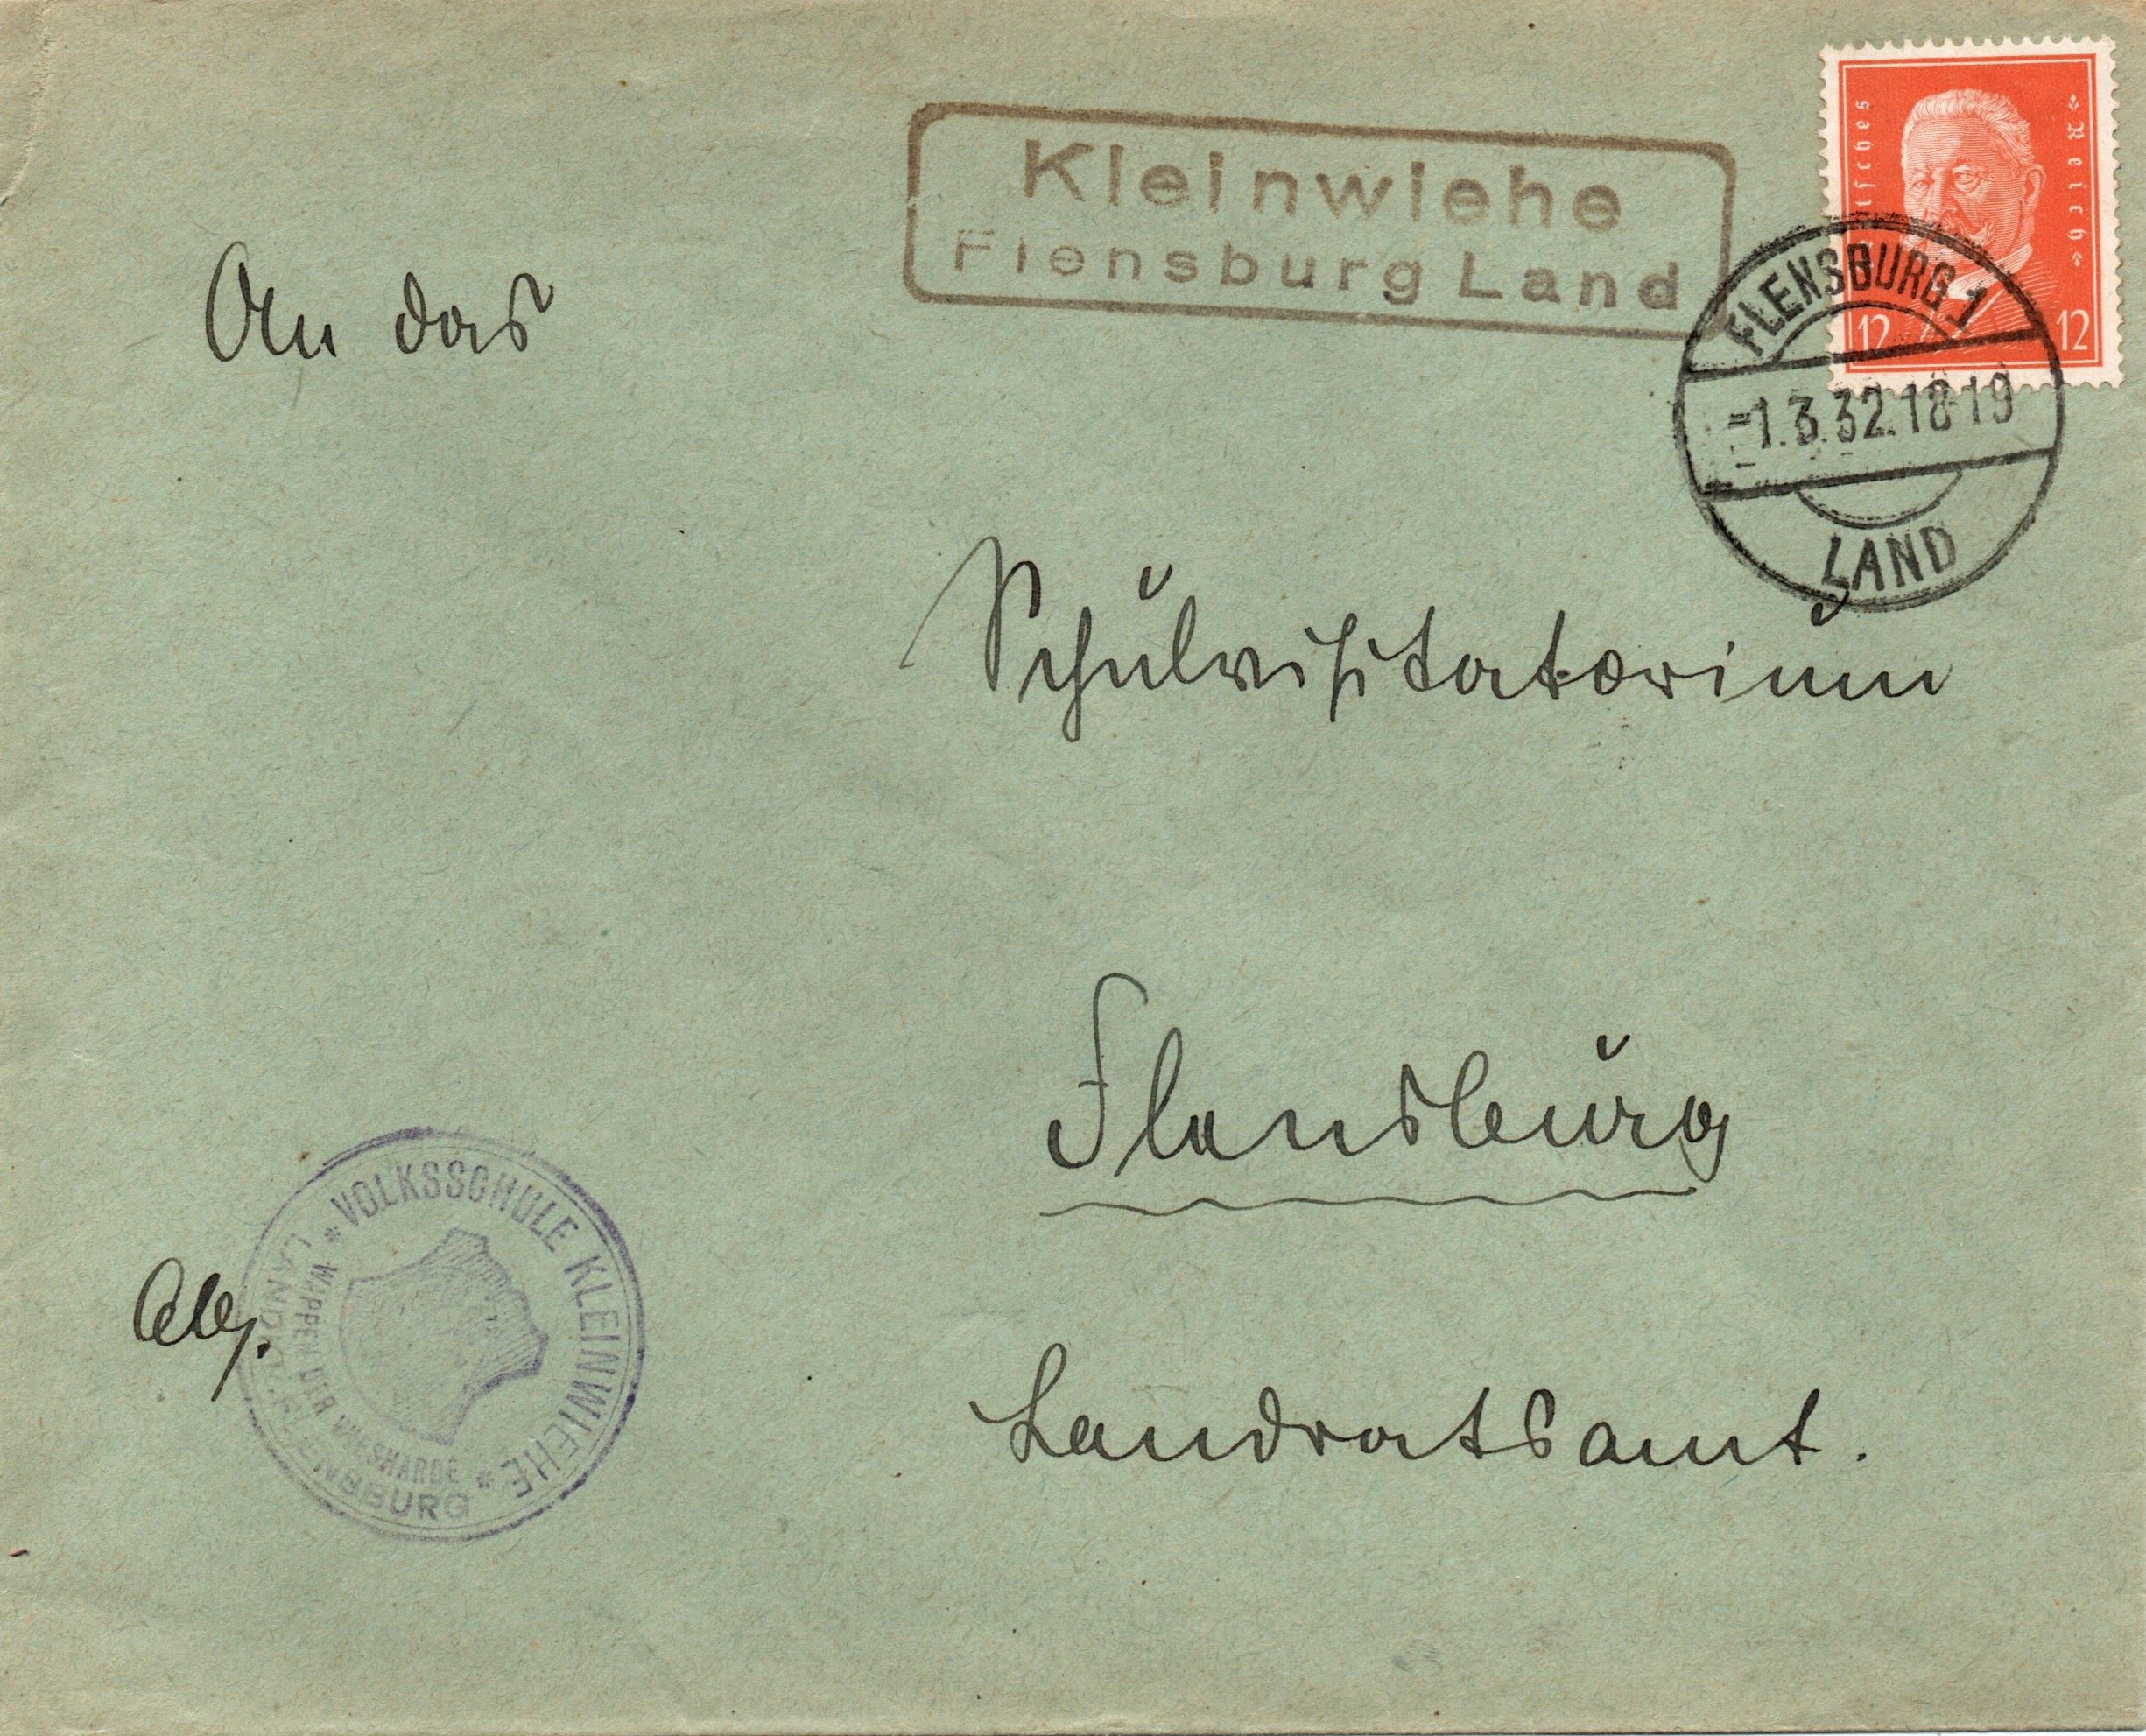 Kleinwiehe
Flensburg Land
Deutsches Reich
12 12
FLENSBURG 1
-1.3.32.18-19
LAND
An das
Schulvisitatorium
Flensburg
Landratsamt.
Abs.
* VOLKSSCHULE KLEINWIEHE *
WAPPEN DER WIESHARDE
FLENSBURG